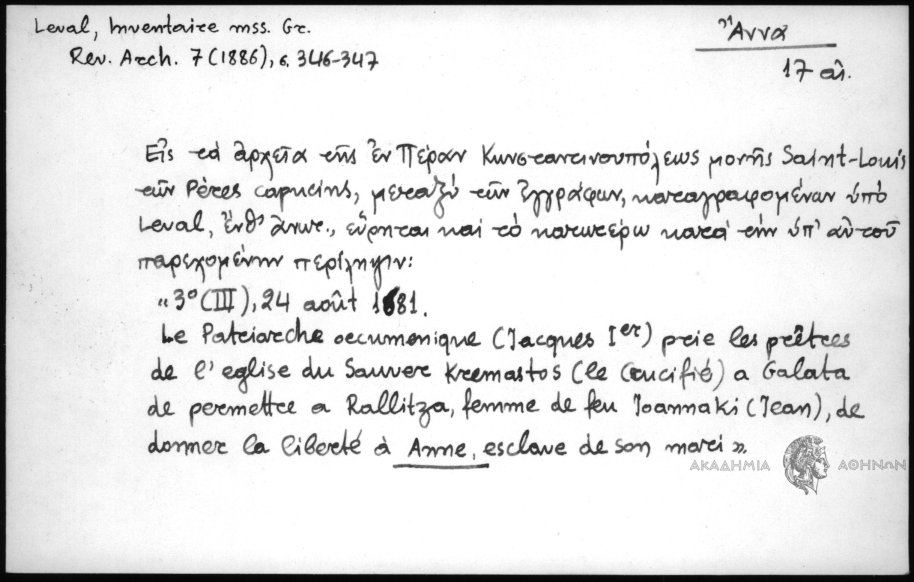 Leval, Inventaire mss. Gr.
Rev. Arch. 7 (1886), σ. 346-347
Ἄννα
17 αἰ.
Εἰς τὰ ἀρχεῖα τῆς ἐν Πέραν Κωνσταντινουπόλεως μονῆς Saint-Louis
τῶν Pères capucins, μεταξὺ τῶν ἐγγράφων, καταγραφομένων ὑπὸ
Leval, ἔνθ' ἀνωτ., εὕρηται καὶ τὸ κατωτέρω κατὰ τὴν ὑπ' αὐτοῦ
παρεχομένην περίληψιν:
« 3º (III), 24 août 1681.
Le Patriarche oecumenique (Jacques Ier) prie les prêtres
de l' eglise du Sauver Kremastos (le Crucifié) a Galata
de permettre a Rallitza, femme de feu Joannaki (Jean), de
donner la liberté à Anne, esclave de son mari ».
ΑΚΑΔΗΜΙΑ ΑΘΗΝΩΝ